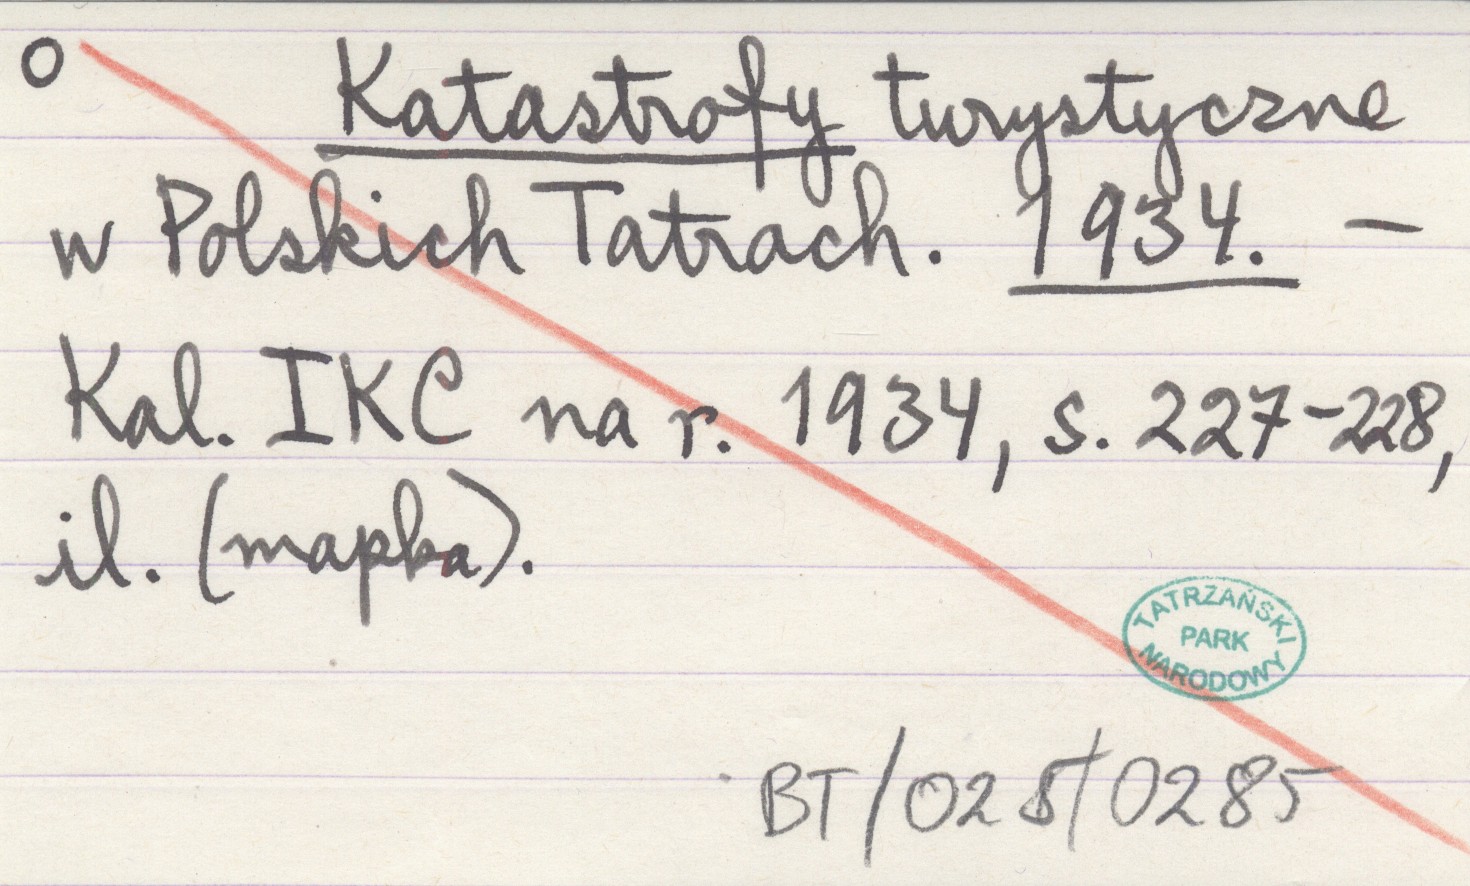 O Katastrofy turystyczne
w Polskich Tatrach. 1934. –
Kal. IKC na r. 1934, s. 227-228,
il. (mapka).
TATRZAŃSKI
PARK
NARODOWY
BT/028/0285